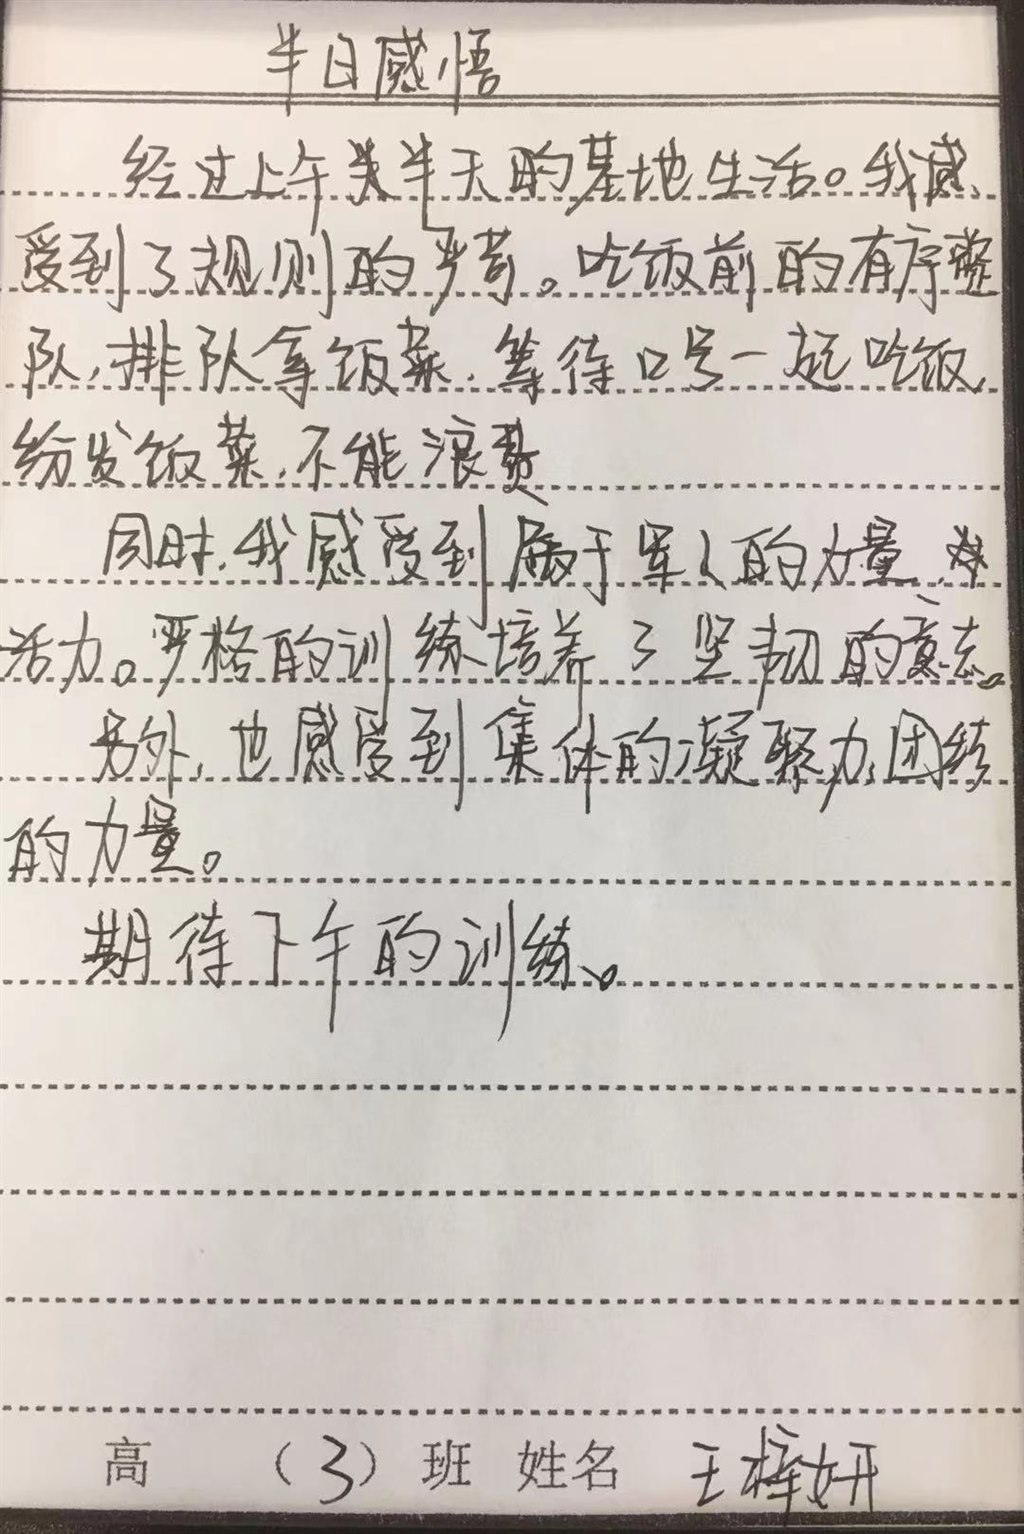 半日感悟
经过上午半天的基地生活。我感
受到了规则的严苛。吃饭前的有序整
队,排队拿饭菜,等待口号一起吃饭,
纷发饭菜,不能浪费
同时,我感受到属于军人的力量,
活力。严格的训练培养了坚韧的意志。
另外,也感受到集体的凝聚力,团结
的力量。
期待下午的训练。
高 (3)班 姓名 王梓妍